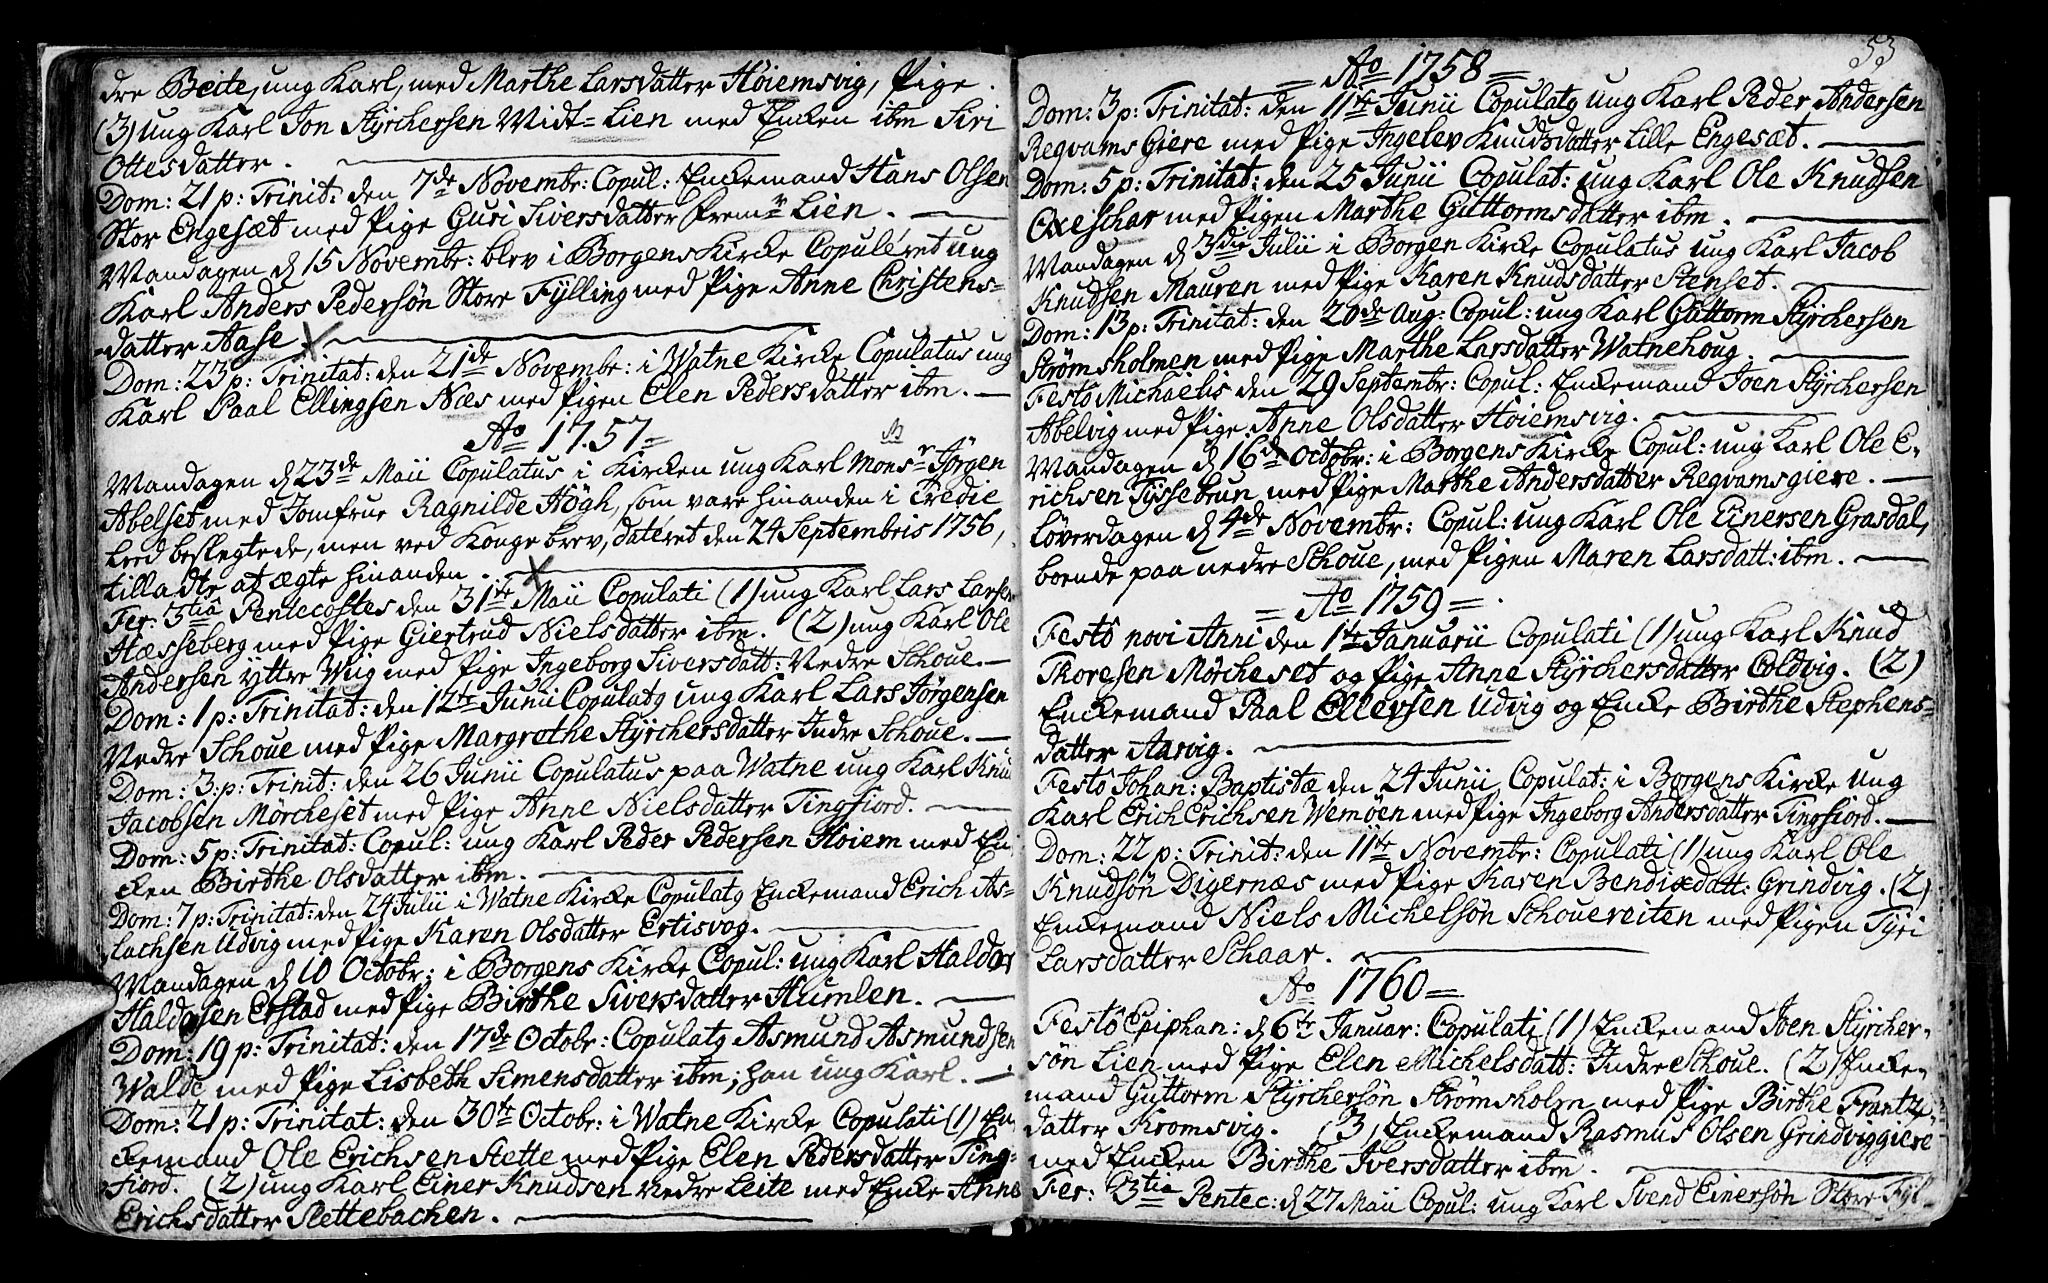 dre Beite, ung Karl, med Marthe Larsdatter Høiemsvig, Pige.
(3) ung Karl Jon Styrchersen Midt=Lien med Encken ibm Siri
Ottesdatter.
Dom: 21 p: Trinit: den 7de Novembr: Copul: Enckemand Hans Olsen
Stor Engesæt med Pige Guri Siversdatter Lien.
Mandagen d 15 Novembr: blev i Borgens Kircke Copuléret ung
Karl Anders Pedersøn Store Fylling med Pige Anne Christens=
datter Aase
Dom: 23 p: Trinitat: den 21de Novembr: i Watne Kircke Copulatus ung
Karl Paal Ellingsen Næs med Pigen Elen Pedersdatter ibm.
Ao 1757=
Mandagen d 23de Maii Copulatus i Kircken ung Karl Monsr Jörgen
Abelset med Jomfrue Ragnilde Högh, som vare hinanden i Tredie
Leed beslegtede, men ved Konge brev, dateret den 24 Septembris 1756,
tilladtes at ægte hinanden.
Fer: 3tia Pentecostes den 31te Maii Copulati (1) ung Karl Lars Larsen
Hæsseberg med Pige Giertrud Nielsdatter ibm. (2) ung Karl Ole
Andersen yttre Wiig med Pige Ingeborg Siversdatt: Nedre Schoue.
Dom: 1 p: Trinitat: den 12te Junii Copulatq ung Karl Lars Jørgensen
Nedre Schoue med Pige Margrethe Styrchersdatter Indre Schoue.
Dom: 3: p: Trinit: den 26 Junii Copulatus paa Watne ung Karl Knud
Jacobsen Mörcheset med Pige Anne Nielsdatter Tingfiord.
Dom: 5 p: Trinitat: Copul: ung Karl Peder Pedersen Høiem med En
cken Birthe Olsdatter ibm.
Dom: 7 p: Trinitat: den 24 Julii i Watne Kircke Copulatq Enckemand Erich As=
lachsen Udvig med Pige Karen Olsdatter Ertisvog.
Mandagen d 10 Octobr: i Borgens Kircke Copul: ung Karl Haldor
Haldorsen Erstad med Pige Birthe Siversdatter Humlen.
Dom: 19 p: Trinitat: den 17de Octobr: Copulatq Asmund Asmundsen
Walde med Pige Lisbeth Simensdatter ibm; han ung Karl.
Dom: 21 p: Trinitat: den 30te Octobr: i Watne Kircke Copulati (1) En
ckemand Ole Erichsen Stette med Pige Elen Pedersdatter Ting=
fiord. (2) ung Karl Einer Knudsen Nedre Leite med Encke Anne
Erichsdatter Slettebachen.
53
= Ao 1758 =
Dom: 3 p: Trinitat: den 11te Junii Copulatq ung Karl Peder Andersen
Reqvams Giere med Pige Ingelev Knudsdatter Lille Engesæt.
Dom: 5 p: Trinitat: den 25 Junii Copulat: ung Karl Ole Knudsen
Oxeschar med Pigen Marthe Guttormsdatter ibm.
Mandagen d 3die Julii i Borgen Kircke Copulatus ung Karl Jacob
Knudsen Mauren med Pige Karen Knudsdatter Stenset.
Dom: 13 p: Trinitat: den 20de Aug: Copul: ung Karl Guttorm Styrchersen
Strømsholmen med Pige Marthe Larsdatter Watnehoug.
Festo Michaelis den 29 Septembr: Copul: Enckemand Joen Styrchersen
Abelvig med Pige Anne Olsdatter Høiemsvig.
Mandagen d 16de Octobr: i Borgens Kircke Copul: ung Karl Ole E,
richsen Tyssebrun med Pige Marthe Andersdatter Reqvamsgiere.
Løverdagen d 4de Novembr: Copul: ung Karl Ole Einersen Grasdal,
boende paa nedre Schoue, med Pigen Maren Larsdatt: ibm.
= Ao 1759 =
Festo novi Anni den 1te Januarii Copulati (1) ung Karl Knud
Thoresen Mørcheset og Pige Anne Styrchersdatter Coldvig. (2)
Enckemand Paal Ellevsen Udvig og Encke Birthe Stephens=
datter Aarvig.
Festo Johan: Baptistæ den 24 Junii Copulat: i Borgens Kircke ung
Karl Erich Erichsen Wemøen med Pige Ingeborg Andersdatter Tingfiord.
Dom: 22 p: Trinit: den 11te Novembr: Copulati (1) ung Karl Ole
Knudsøn Digernæs med Pige Karen Bendixdatt: Grindvig. (2)
Enckemand Niels Michelsøn Schouereiten med Pigen Tyri
Larsdatter Schaar.
Ao 1760=
Festo Epiphan: d 6te Januar: Copulati (1) Enckemand Joen Styrcher=
søn Lien med Pige Elen Michelsdatt: Indre Schoue. (2) Encke=
mand Guttorm Styrchersøn Strømsholm med Pige Birthe Frantz
datter Kromsvig. (3) Enckemand Rasmus Olsen Grindviggiere
med Encken Birthe Iversdatter ibm.
Fer: 3tia Pentec: d 27 Maii Copul: ung Karl Svend Einersøn Store Fyl=